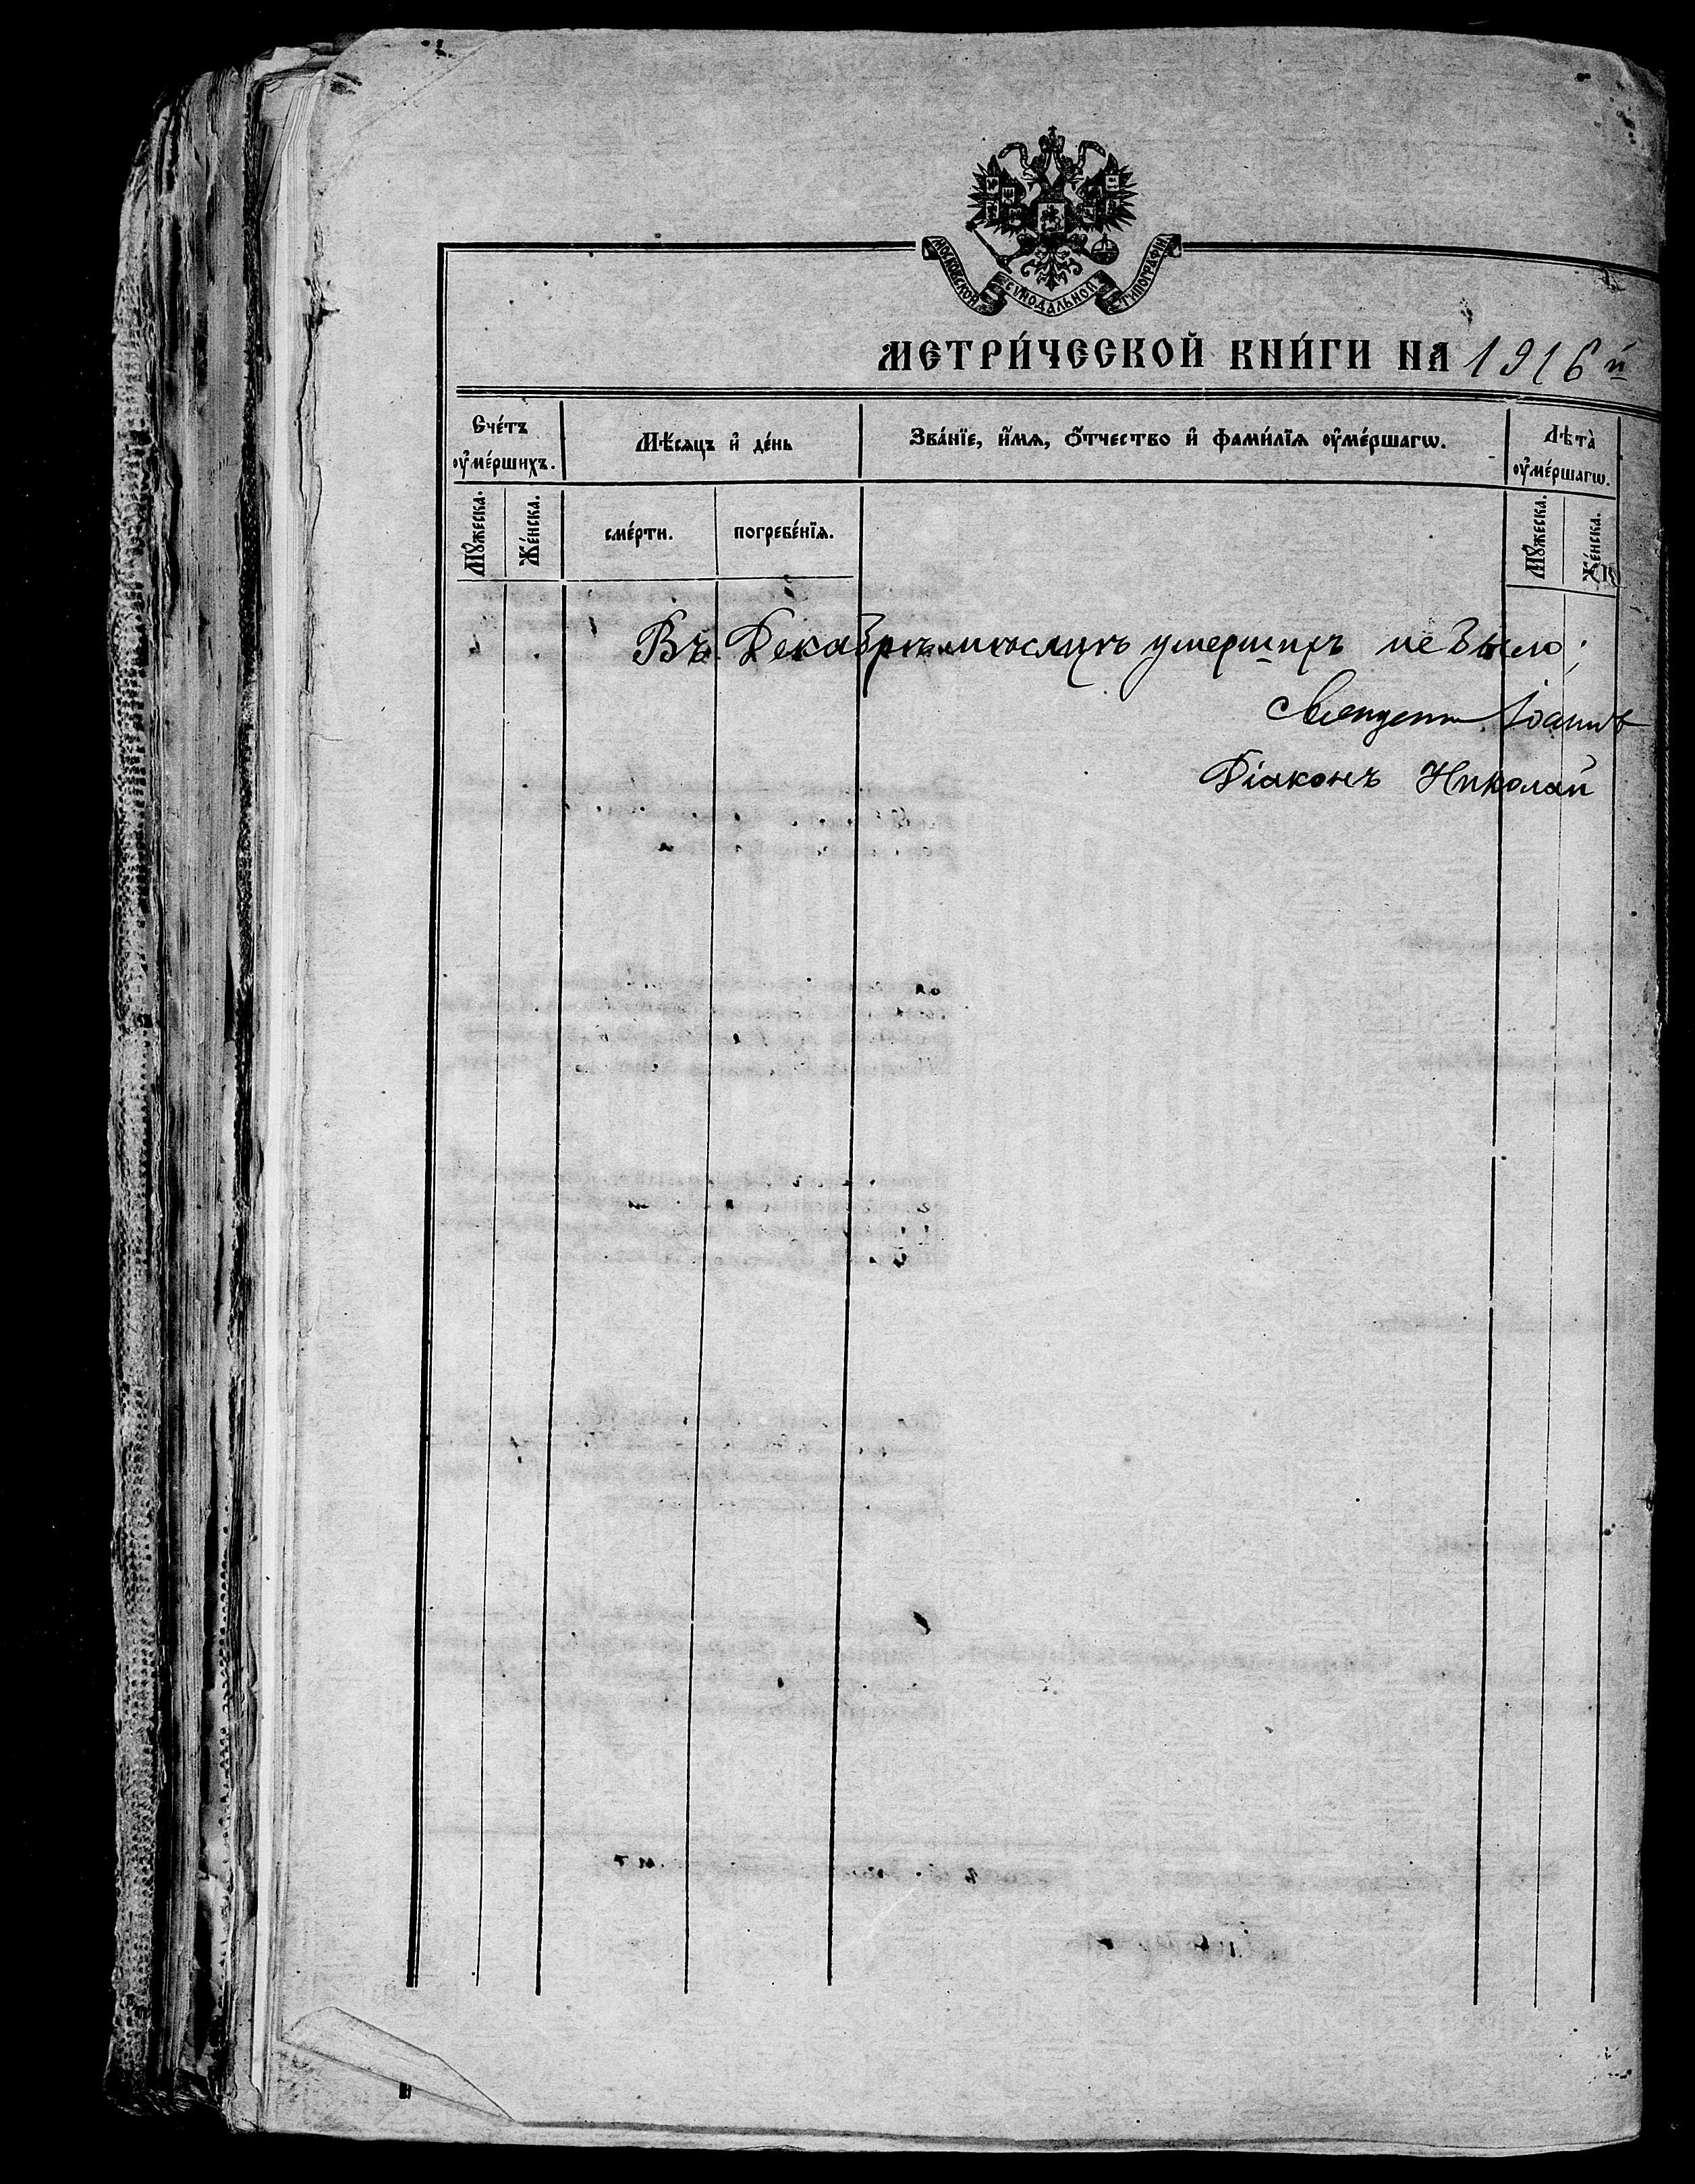 МОСКОВСКОЙ СѴНОДАЛЬНОЙ ТИПОГРАФІИ
МЕТРИ́ЧЕСКОЙ КНИ́ГИ НА 1916й
Сче́тъ ᲂу҆ме́ршихъ.
Мѣ́сяцъ и҆ де́нь
Зва́нїе, и҆́мѧ, ѻ҆́тчество и҆ фами́лїѧ ᲂу҆ме́ршагѡ.
Лѣта̀ ᲂу҆ме́ршагѡ.
Мꙋ́жеска.
Же́нска.
сме́рти.
погребе́нїѧ.
Мꙋ́жеска.
Же́нска.
Въ Декабрѣ мѣсяцѣ умершихъ не было;
Священ Іоаннъ
Діаконъ Николай